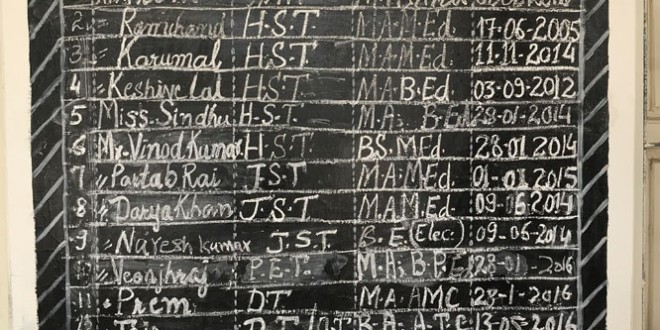 2 〃 Romchand H.S.T M.A.M.Ed. 17-06-2005
3 〃 Karumal H.S.T M.A.M.Ed 11-11-2014
4 〃 Keshive Lal H.S.T M.A B.Ed. 03-09-2012
5 Miss. Sindhu H.S.T. M.A. B.Ed 28-01-2014
6 Mr. Vinod Kumar H.S.T BS. M.Ed. 28-01-2014
7 〃 Partab Rai J.S.T M.A.M.Ed. 01-01-2015
8 〃 Darya Khan J.S.T M.A.M.Ed. 09-06-2014
9 〃 Naresh Kumar J.S.T. B.E.(Elec:) 09-06-2014
10 〃 Veonjhraj P.E.T. M.A. B.P.E 28-01-2016
11 〃 Prem D.T. M.A. AMC 28-1-2016